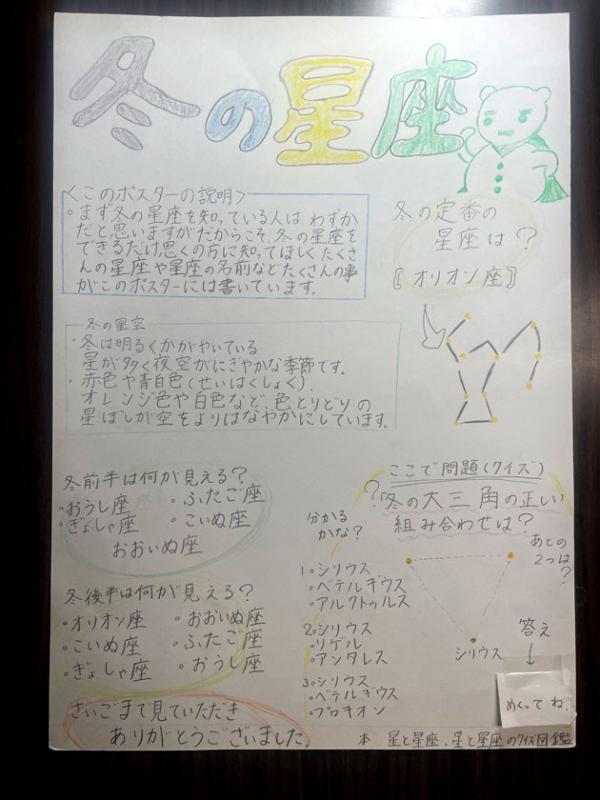 冬の星座
<このポスターの説明>
・まず冬の星座を知っている人はわずか
だと思いますがだからこそ、冬の星座を
できるだけ多くの方に知ってほしくたくさ
んの星座や星座の名前などたくさんの事
がこのポスターには書いています。
冬の定番の
星座は?
〖オリオン座〗
冬の星空
・冬は明るくかがやいている
星が多く夜空がにぎやかな季節です。
・赤色や青白色(せいはくしょく)、
オレンジ色や白色など、色とりどりの
星ぼしが空をよりはなやかにしています。
冬前半は何が見える?
・おうし座 ・ふたご座
・ぎょしゃ座 ・こいぬ座
おおいぬ座
冬後半は何が見える?
・オリオン座 ・おおいぬ座
・こいぬ座 ・ふたご座
・ぎょしゃ座 ・おうし座
さいごまで見ていただき
ありがとうございました。
ここで問題(クイズ)
?「冬の大三角の正しい
組み合わせは?
分かる
かな?
1.シリウス
・ベテルギウス
・アルクトゥルス
2.シリウス
・リゲル
・アンタレス
3.シリウス
・ベテルギウス
・プロキオン
あとの
2つは
?
シリウス
答え
↓
めくってね。
本 星と星座、星と星座のクイズ図鑑